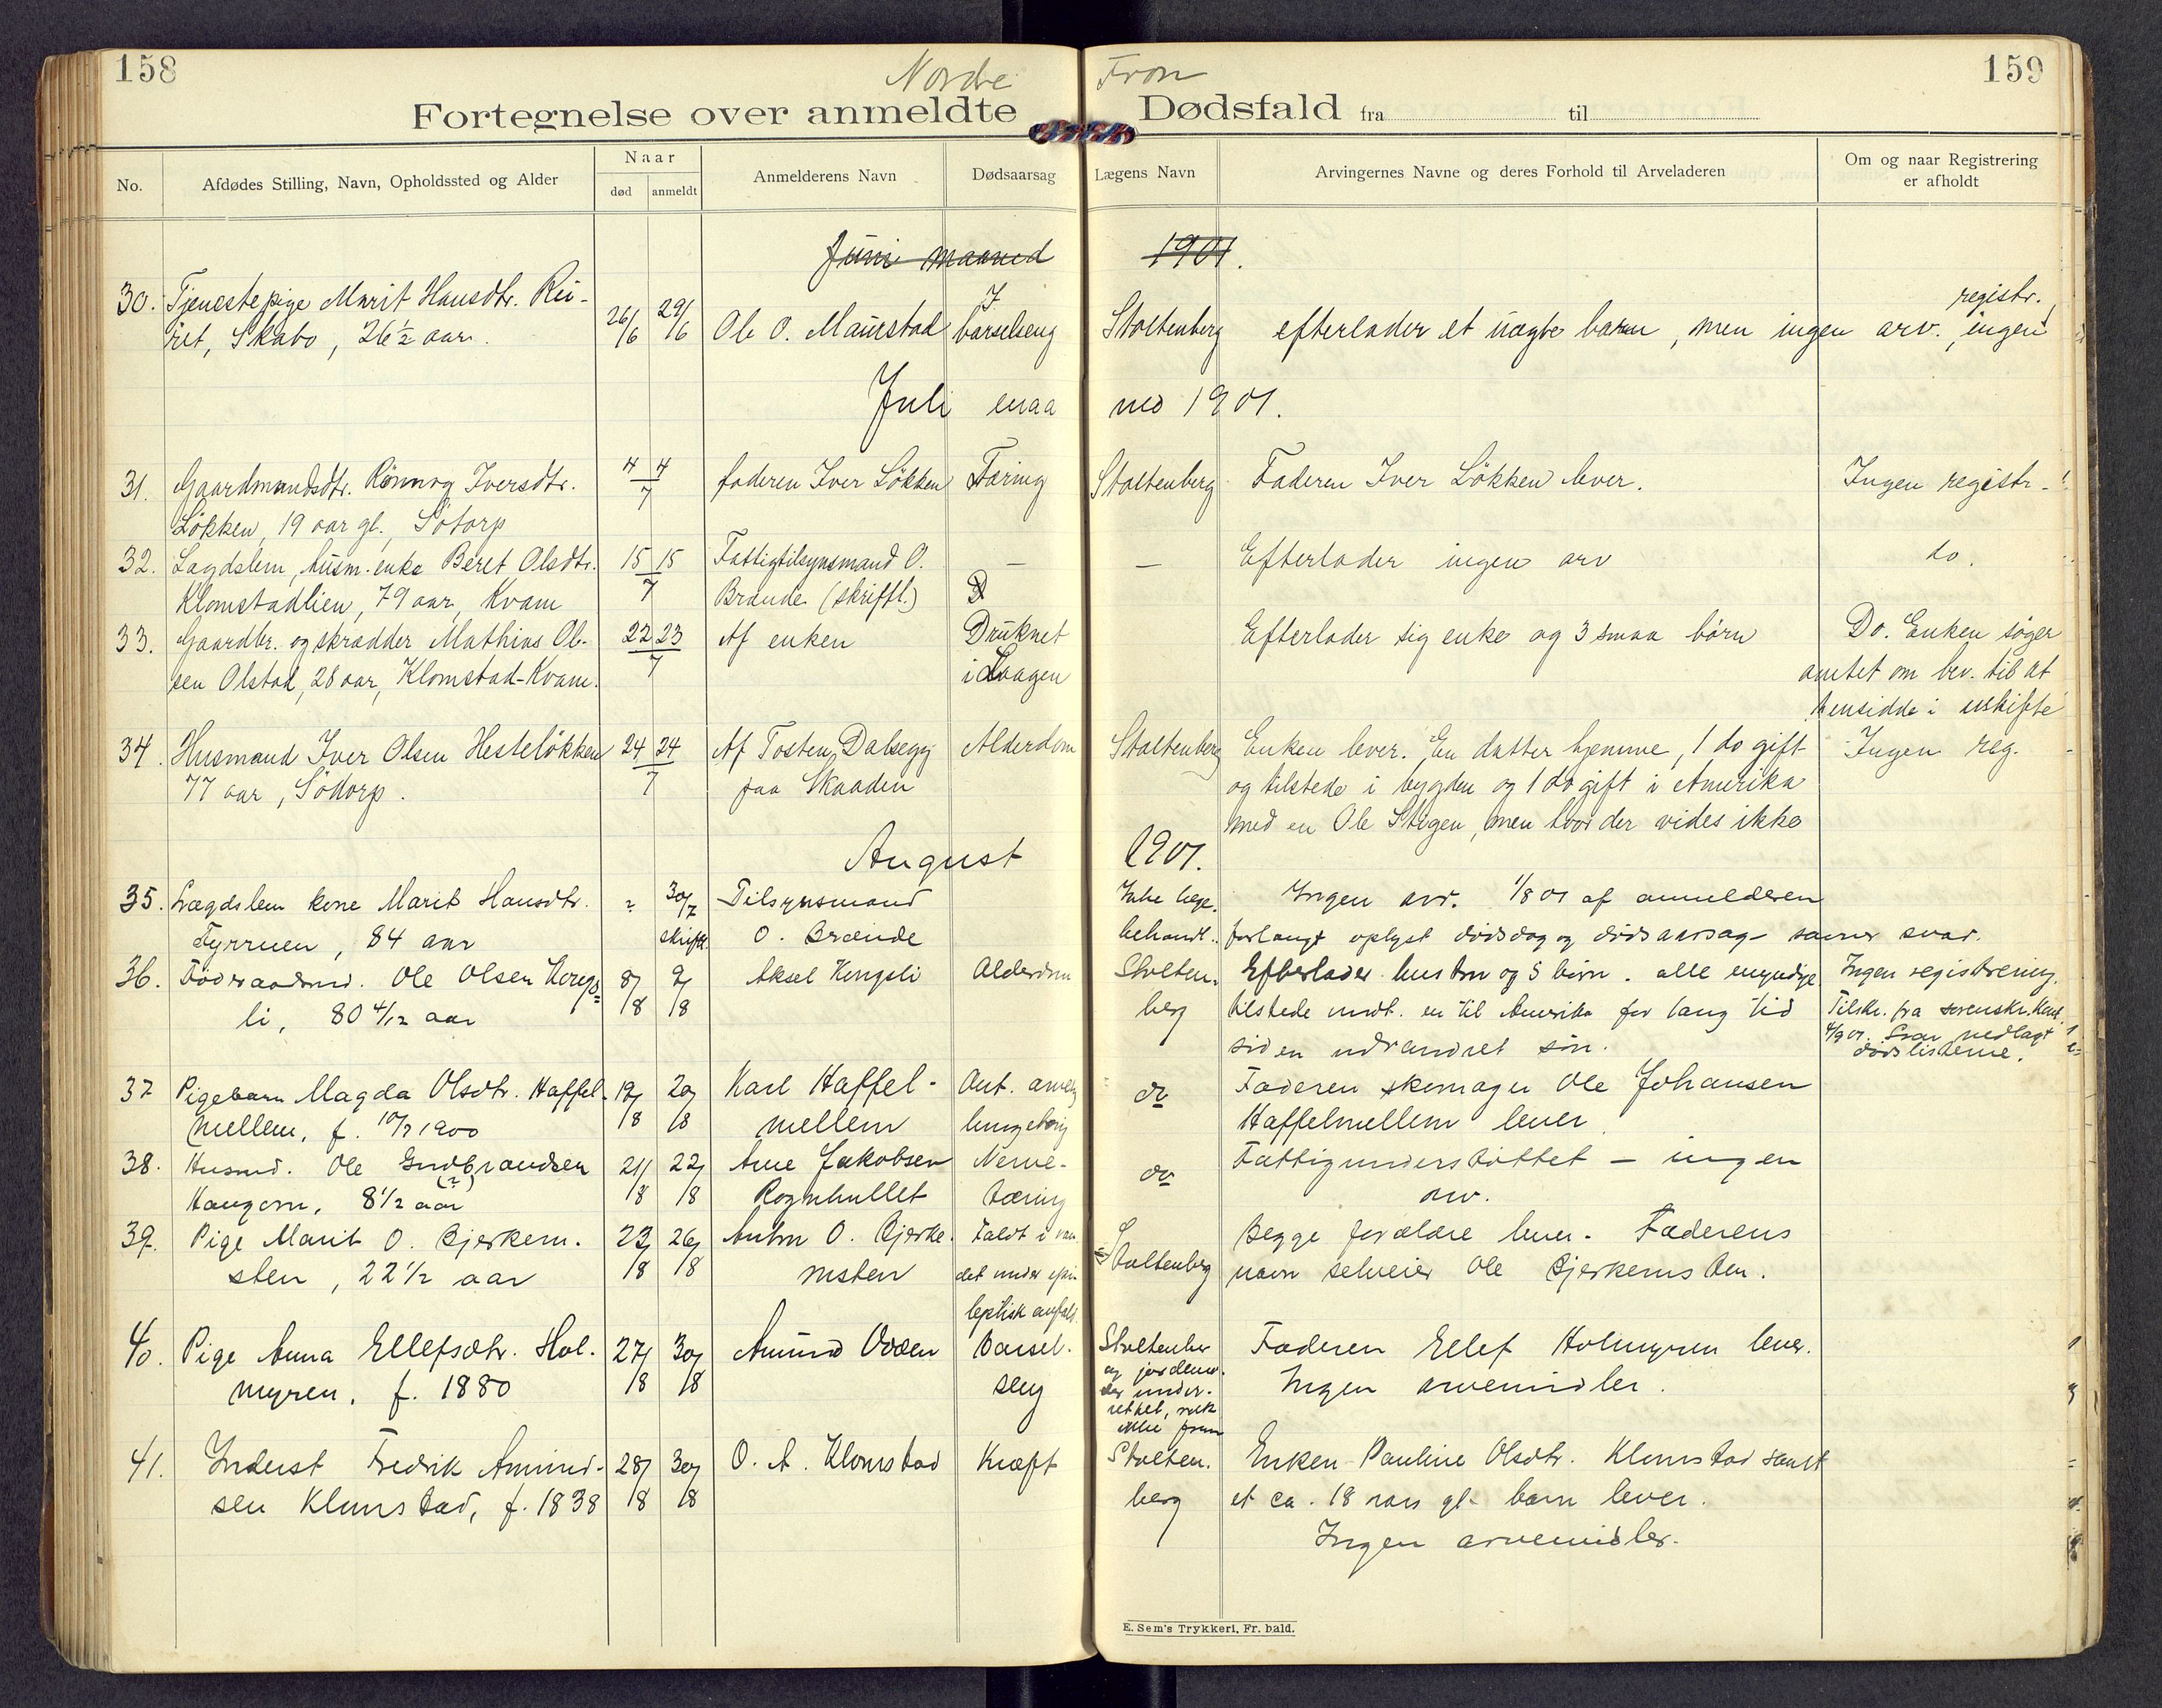 158
Nordre Fron
159
Fortegnelse over anmeldte Dødsfald fra til
No.
Afdødes Stilling, Navn, Opholdssted og Alder
Naar
død
anmeldt
Anmelderens Navn
Dødsaarsag
Lægens Navn
Arvingernes Navne og deres Forhold til Arveladeren
Om og naar Registrering
er afholdt
Juni maaned 1901.
30. Tjenestepige Marit Hansdtr.
Skabo, 26 ½ aar.
26/6 29/6
Ole O. Maurstad
I
barselseng
Stoltenberg
efterlader et uægte barn, men ingen arv.
registr.
ingen
Juli maaned 1901.
31. Gaardmandsdtr. Rönnog Iversdtr.
Løkken, 19 aar gl., Sødorp
4 4
7
faderen Iver Løkken
Tæring
Stoltenberg
Faderen Iver Løkken lever.
Ingen registr.
32. Lægdslem, husm. enke Beret Olsdtr.
Klomstadlien, 79 aar, Kvam
15 15
7
Fattigtilsynsmand O.
Brænde (skriftl.)
—
—
Efterlader ingen arv
do.
33. Gaardbr. og skrædder Mathias Ol-
sen Olstad, 28 aar, Klomstad-Kvam.
22 23
7
Af enken
Druknet
i Laagen
Efterlader sig enke og 3 smaa børn
Do. Enken søger
amtet om bev. til at
hensidde i uskifte
34. Husmand Iver Olsen Hesteløkken
77 aar, Sødorp.
24 24
7
Af Tosten Dalsegg
paa Skaaden
Alderdom
Stoltenberg
Enken lever. En datter hjemme, 1 do gift
og tilstede i bygden og 1 do gift i Amerika
med en Ole Stigen, men hvor der vides ikke
Ingen reg.
August 1901.
35. Lægdslem kone Marit Hansdtr.
Fyrruen, 84 aar
?
30/7
skriftl.
Tilsynsmand
O. Brænde
Ikke læge-
behandl.
Ingen arv. 1/8 01 af anmelderen
forlangt oplyst dødsdag og dødsaarsag - savner svar.
36. Föderaadsmd. Ole Olsen Kongs-
li, 80 4/12 aar
8/8 9/8
Aksel Kongsli
Alderdom
Stolten-
berg
Efterlader hustru og 5 börn. alle myndige
tilstede undt. en til Amerika for lang tid
siden udvandret sön.
Ingen registrering.
Tilskr. fra sorenskr.
4/9 01. Svar nedlagt
dødslisterne.
37 Pigebarn Magda Olsdtr. Haffel-
mellem, f. 10/7 1900
19/8 20/8
Karl Haffel-
mellem
Ant. arvelig
Do
Faderen skomager Ole Johansen
Haffelmellem lever.
38. Husmd. Ole Gudbrandsen
Haugom, 81 ½ aar
(?)
21/8 22/8
Arne Jakobsen
Rognhullet
Nerve-
tæring
Do
Fattigunderstøttet - ingen
arv.
39. Pige Marit O. Bjerkem-
sten, 22 ½ aar
23/8 26/8
Anton O. Bjerke-
msten
Faldt i van-
det under epi-
leptisk anfald.
Stoltenberg
Begge forældre lever. Faderens
navn selveier Ole Bjerkemsten.
40. Pige Anna Ellefsdtr. Hol-
myren, f. 1880
27/8 30/8
Amund Odden
Barsel-
seng
Stoltenber
og jordemo-
der under-
rettet, rak
ikke frem
Faderen Ellef Holmyren lever.
Ingen arvemidler.
41. Inderst Fredrik Amund-
sen Klomstad, f. 1838
28/8 30/8
O. A. Klomstad
Kræft
Stolten-
berg
Enken Pauline Olsdtr. Klomstad samt
et ca. 18 aars gl. barn lever.
Ingen arvemidler.
E. Sem's Trykkeri, Fr. hald.